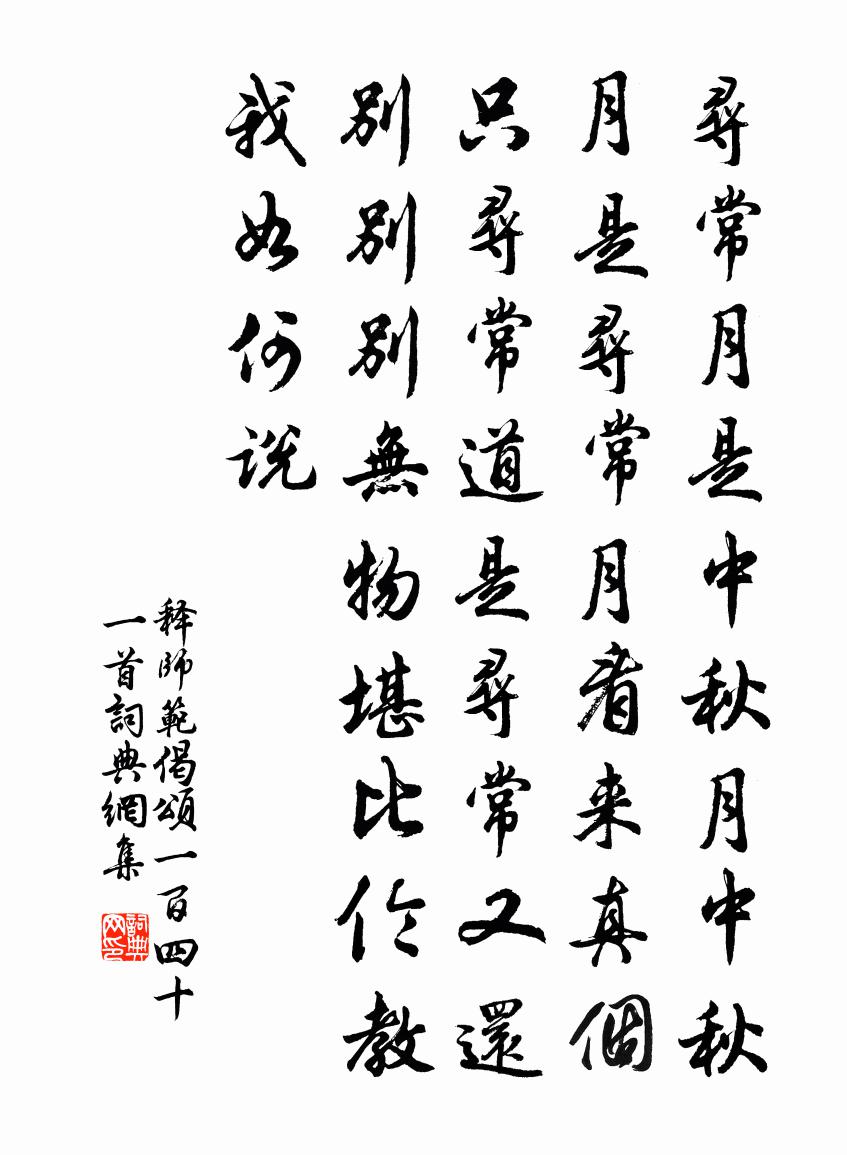 尋常月是中秋月中秋
月是尋常月看来真個
只尋常道是尋常又還
別別別無物堪比伦教
我如何说
释師範偈頌一百四十
一首詞典網集
詞典网印